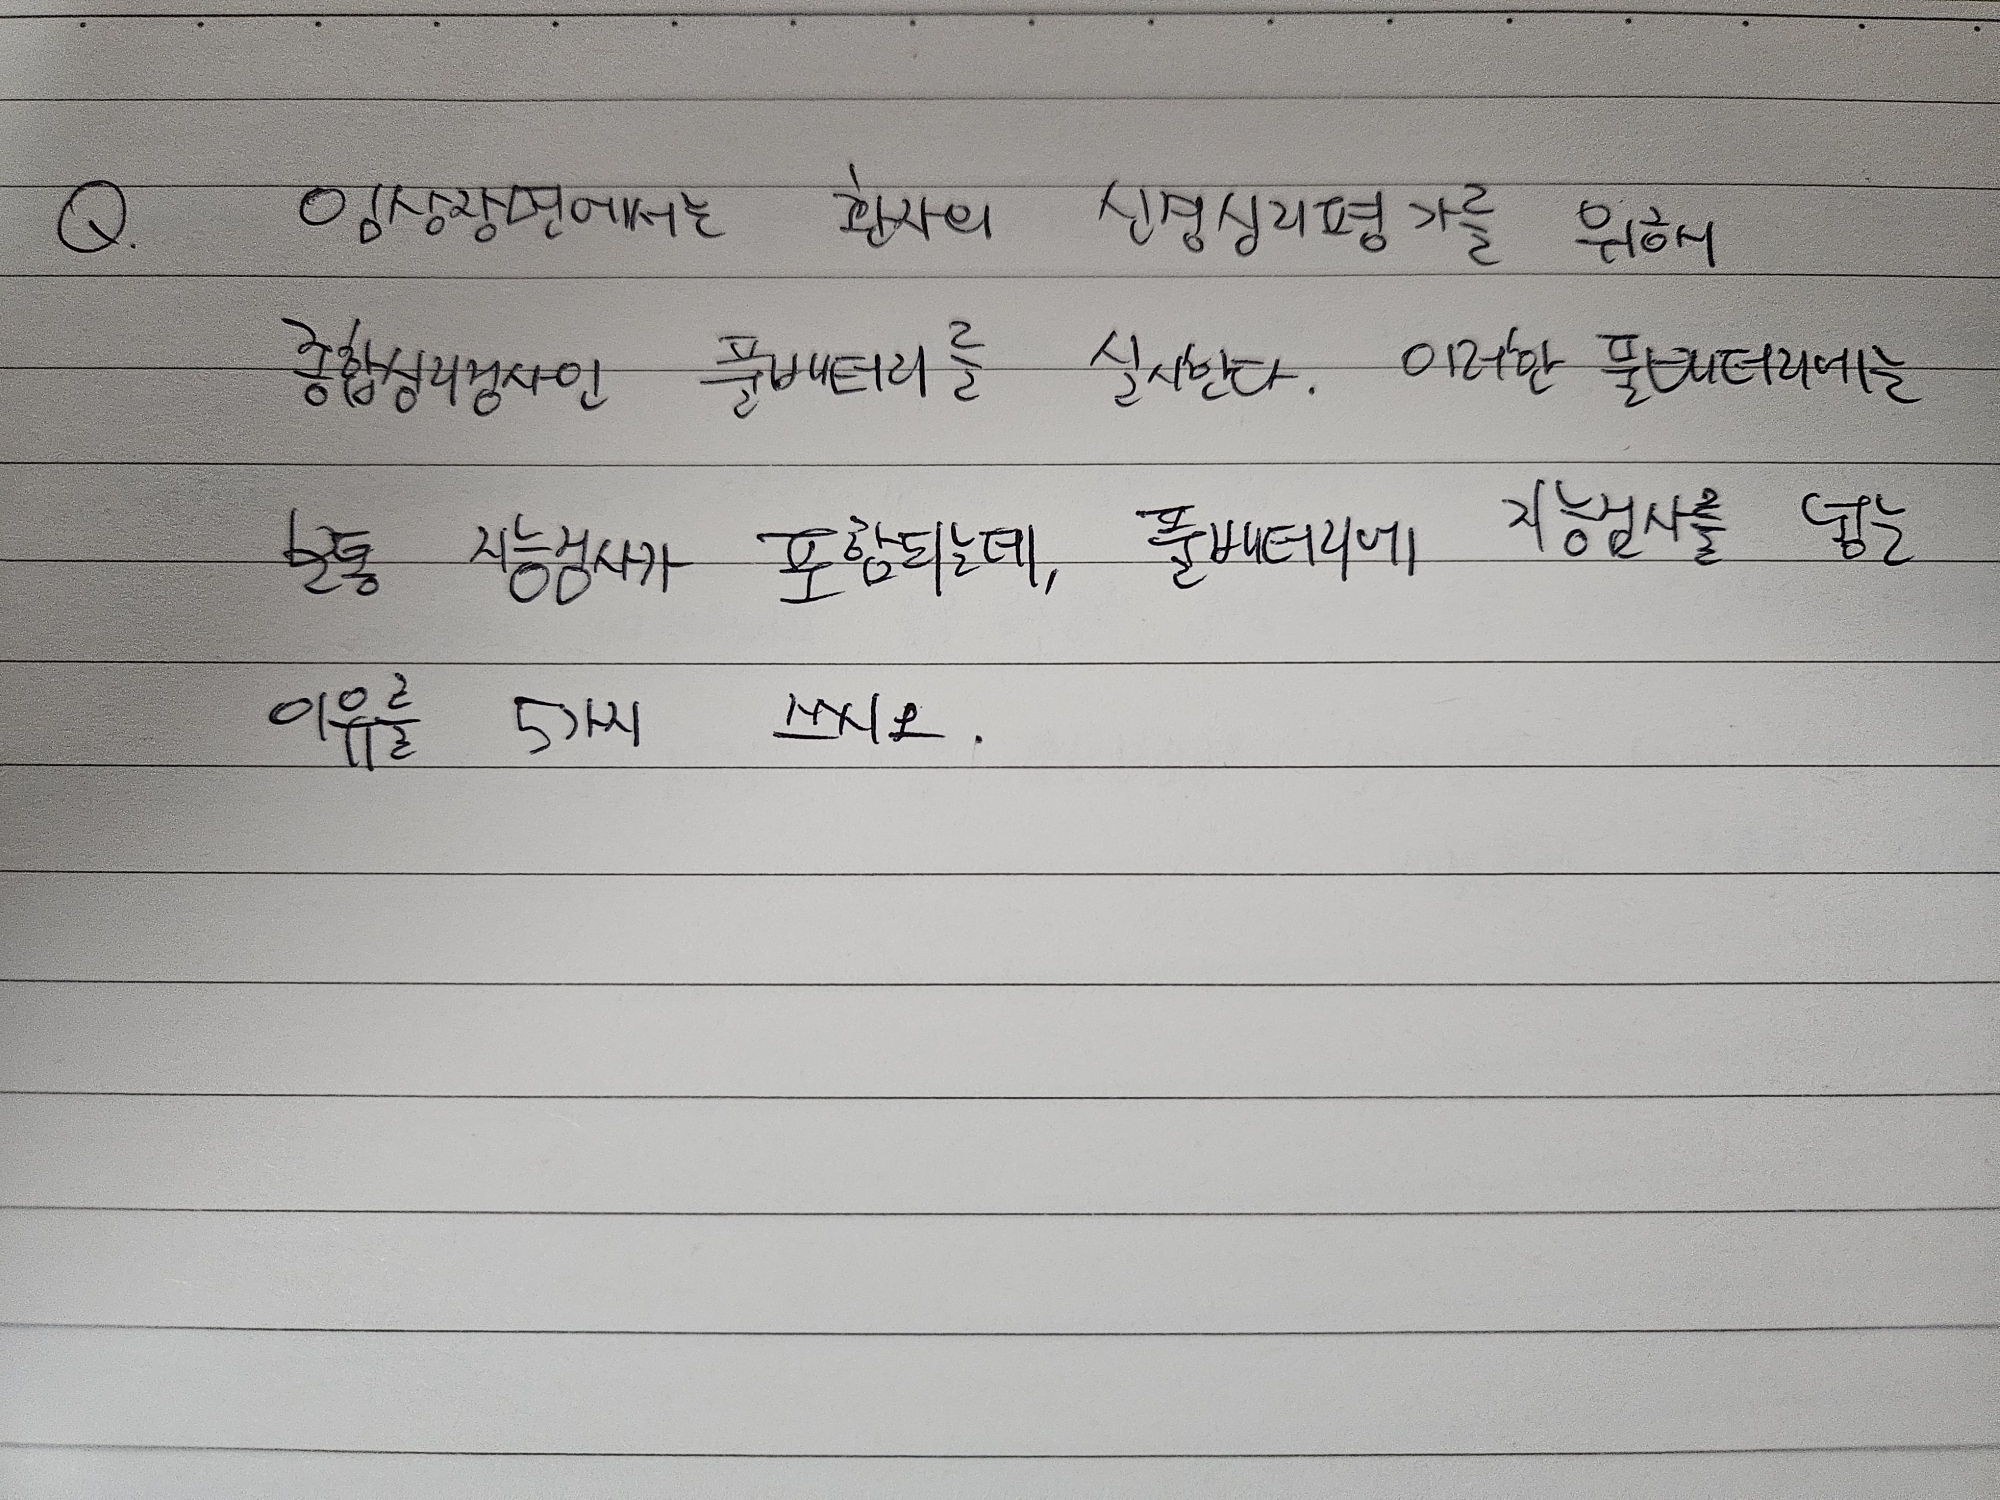 Q. 임상장면에서는 환자의 신경심리평가를 위해서
종합심리검사인 풀배터리를 실시한다. 이러한 풀배터리에는
보통 지능검사가 포함되는데, 풀배터리에 지능검사를 넣는
이유를 5가지 쓰시오.